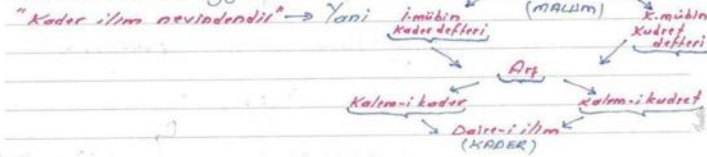 (MALUM)
"Kader ilim nevindendir" → Yani İ.mübin K.mübin
Kader defteri Kudret
defteri
Arş
Kalem-i kader Kalem-i kudret
Daire-i ilim
(KADER)